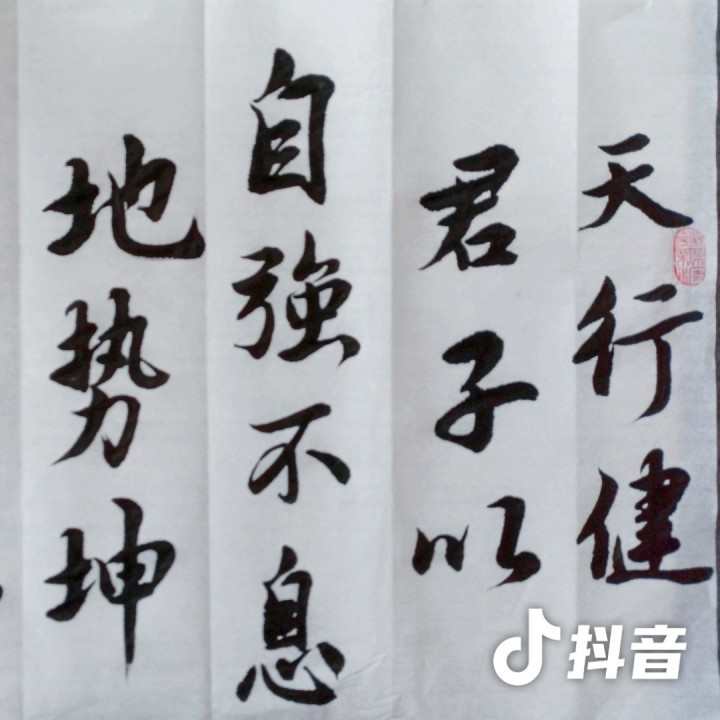 天行健
君子以
自強不息
地势坤
抖音